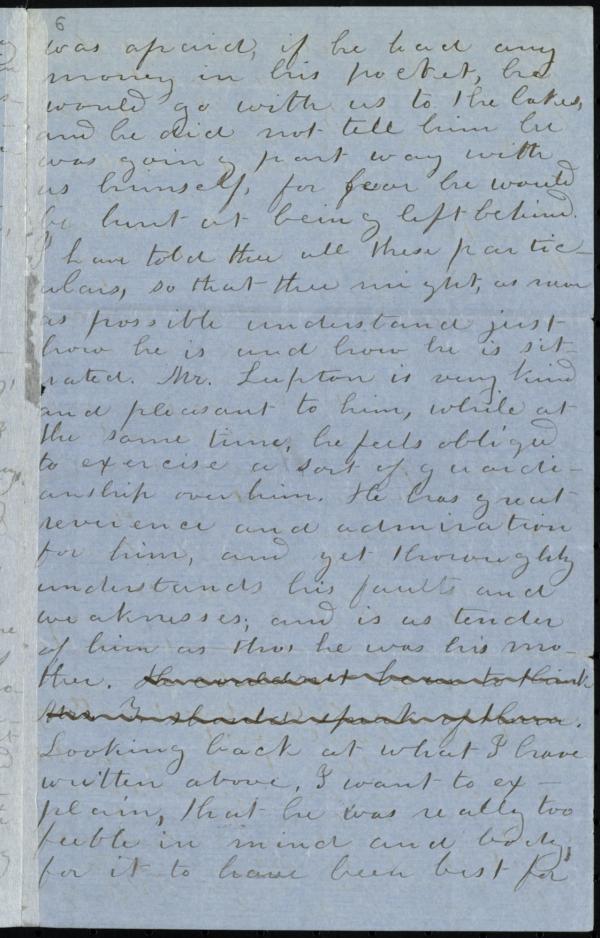 6
was afraid, if he had any
money in his pocket, he
would go with us to the lakes,
and he did not tell him he
was going part way with
us himself, for fear he would
be hurt at being left behind.
I have told thee all these partic-
ulars, so that thee might, as near
as possible understand just
how he is and how he is sit-
uated. Mr. Lupton is very kind
and pleasant to him, while at
the same time, he feels obliged
to exercise a sort of guardi-
anship over him. He has great
reverence and admiration
for him, and yet thoroughly
understands his faults and
weaknesses; and is as tender
of him as tho' he was his mo-
ther. He could not bear to think
I should speak of them.
Looking back at what I have
written above, I want to ex-
plain, that he was really too
feeble in mind and body,
for it to have been best for